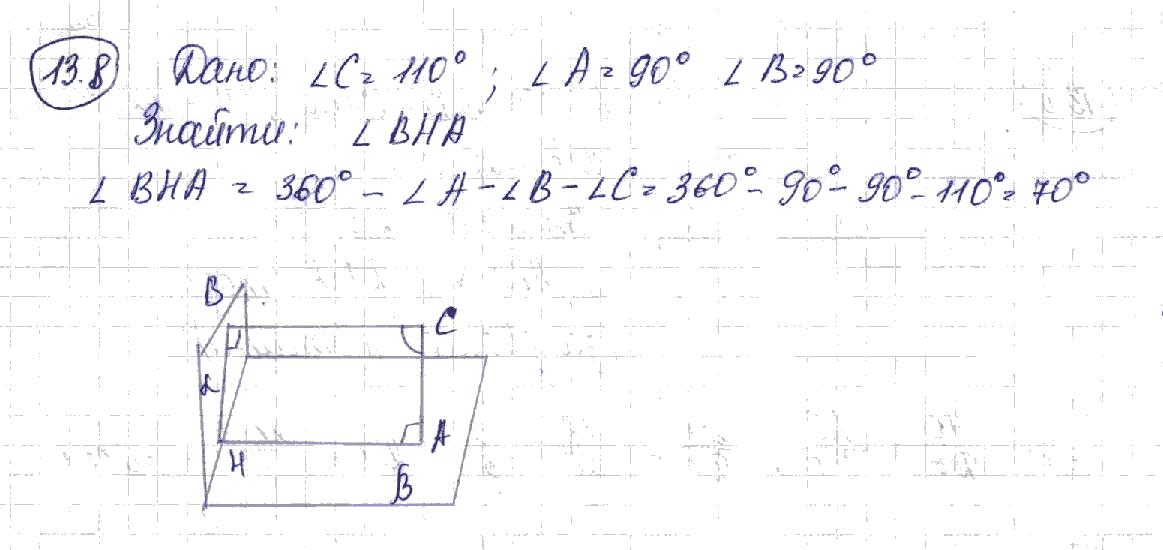 13.8 Дано: ∠C = 110°; ∠A = 90° ∠B = 90°
Знайти: ∠BHA
∠BHA = 360° - ∠A - ∠B - ∠C = 360° - 90° - 90° - 110° = 70°
B
C
α
A
H
β